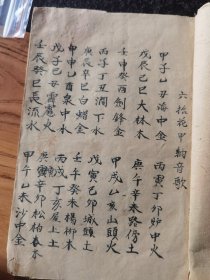 六拾花甲納音歌
甲子乙丑海中金
丙寅丁卯炉中火
戊辰己巳大林木
庚午辛未路傍土
壬申癸酉劍鋒金
甲戌乙亥山頭火
丙子丁丑澗下水
戊寅己卯城頭土
庚辰辛巳白蜡金
壬午癸未楊柳木
甲申乙酉泉中水
丙戌丁亥屋上土
戊子己丑霹靂火
庚寅辛卯松柏木
壬辰癸巳長流水
甲午乙未沙中金